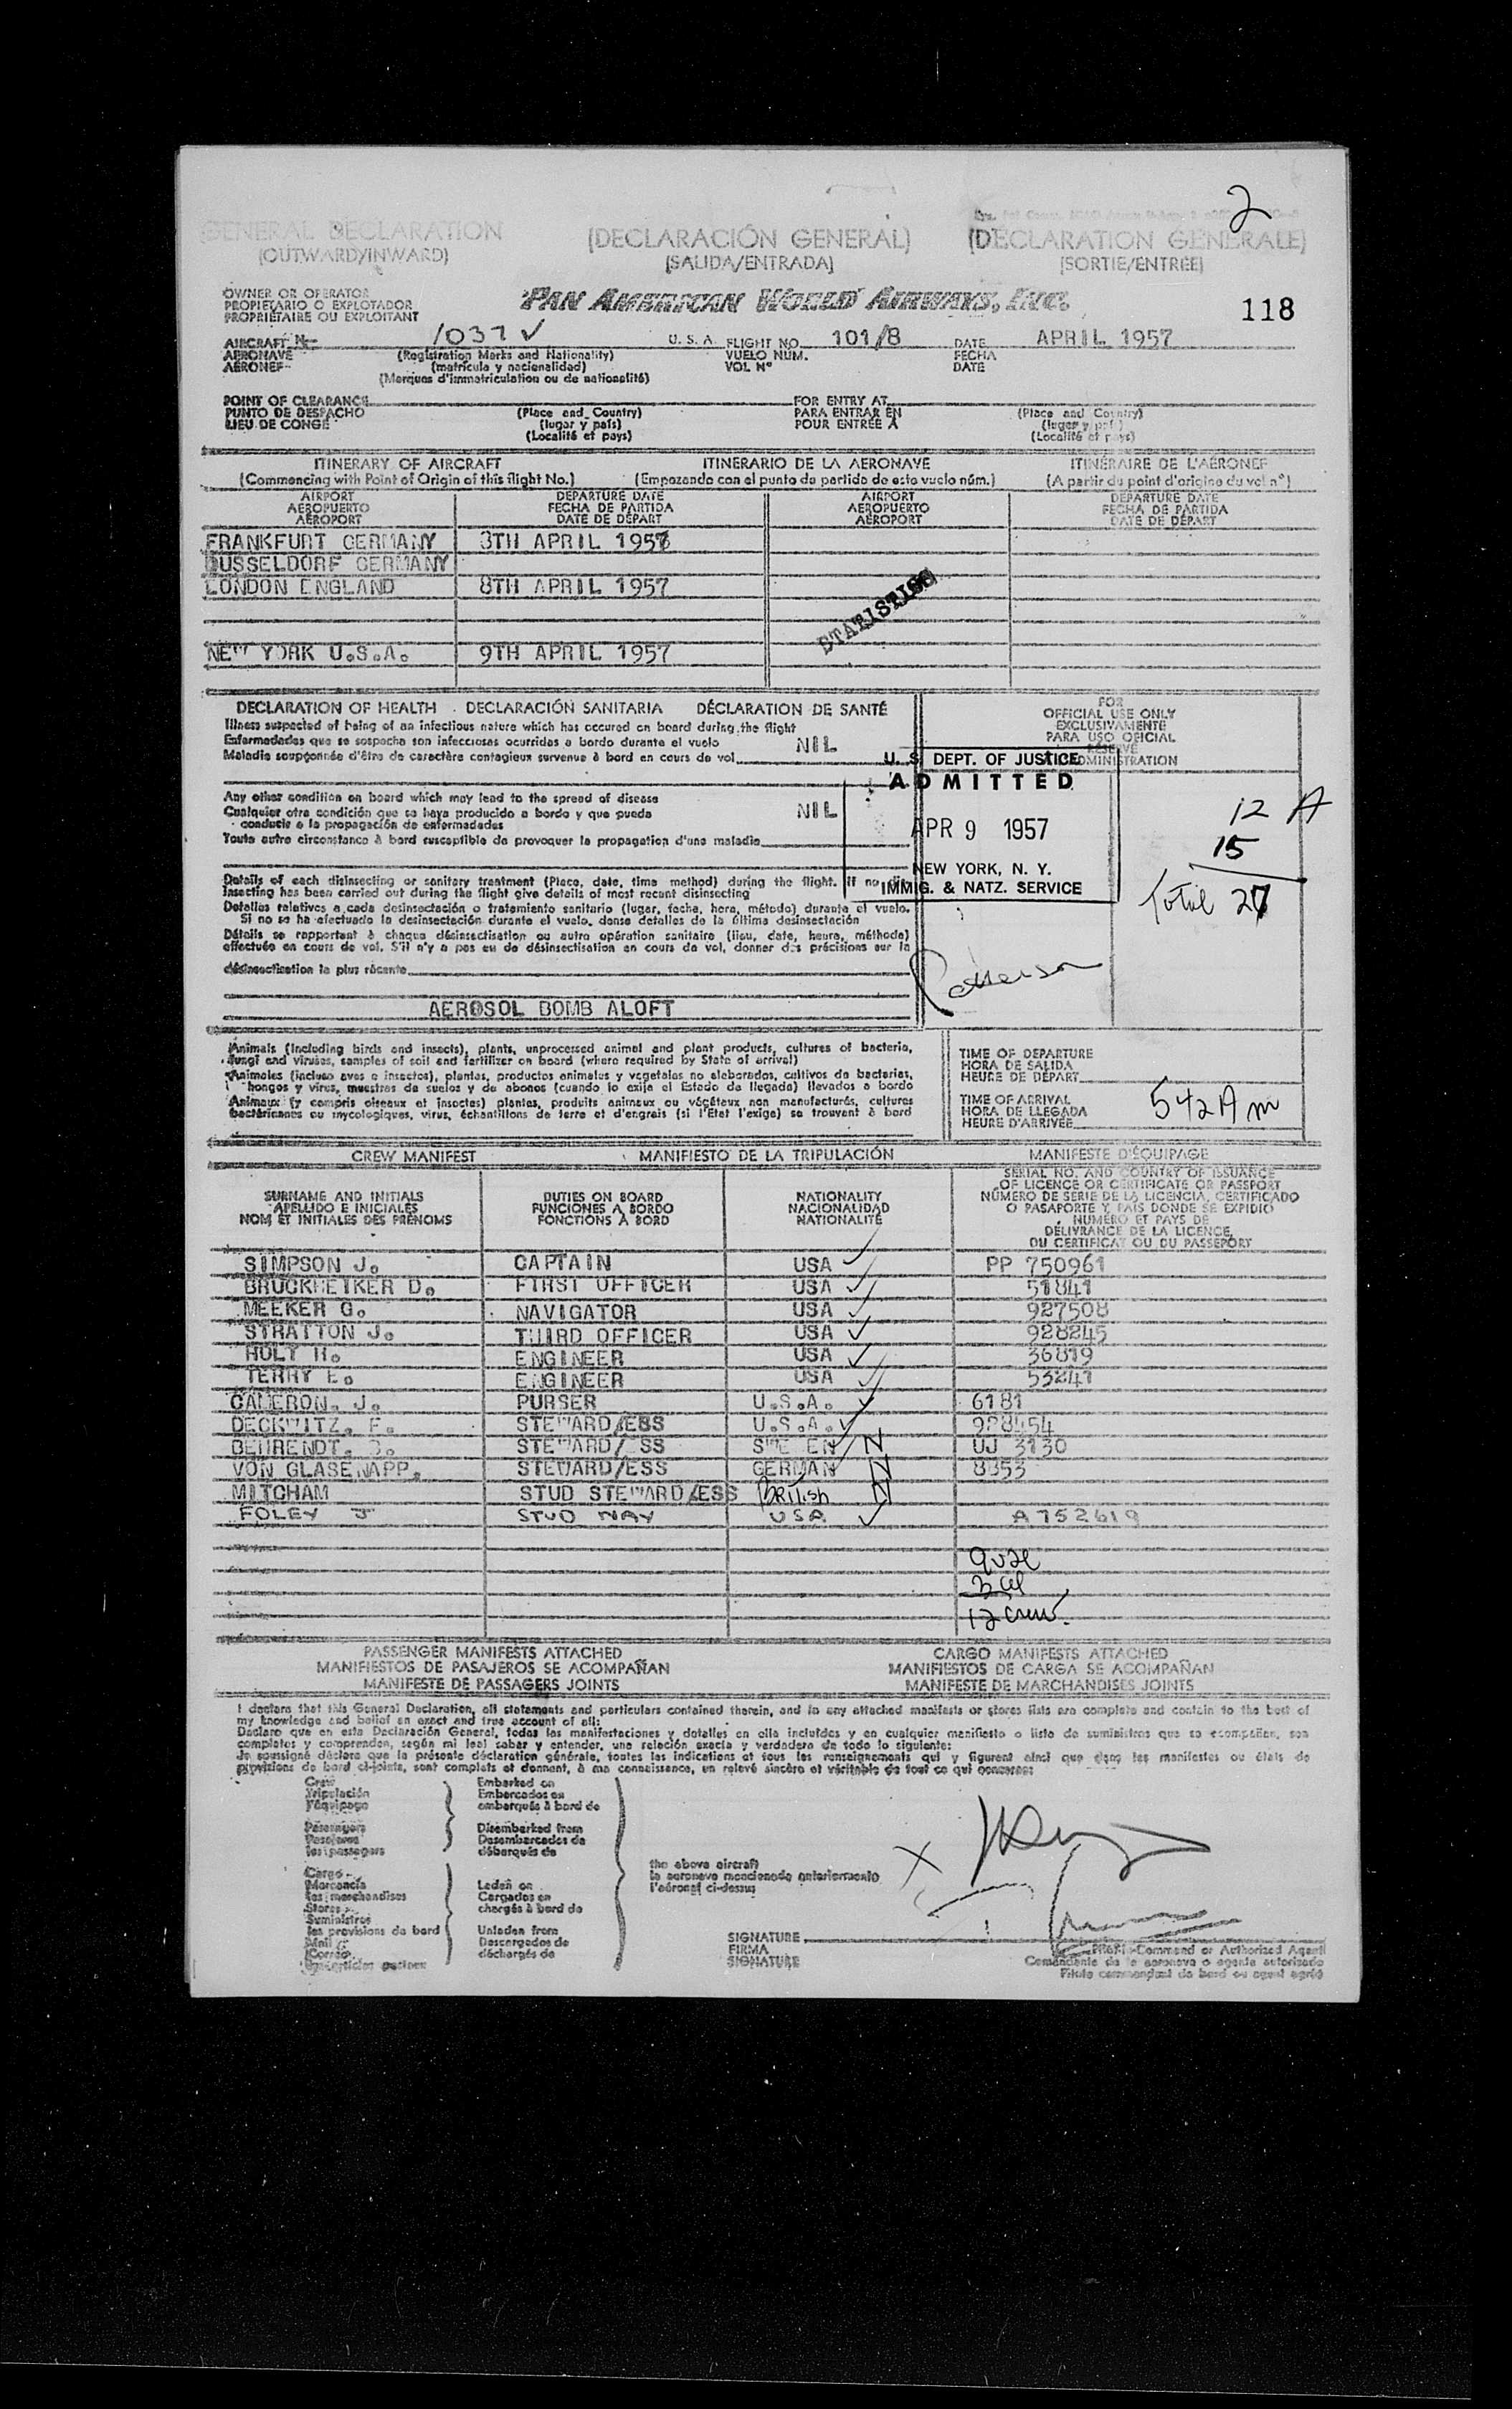 2
GENERAL DECLARATION (DECLARACIÓN GENERAL) (DECLARATION GENERALE)
(OUTWARD/INWARD) (SALIDA/ENTRADA) (SORTIE/ENTRÉE)
OWNER OR OPERATOR
PROPIETARIO O EXPLOTADOR
PROPRIÉTAIRE OU EXPLOITANT
PAN AMERICAN WORLD AIRWAYS, INC.
118
AIRCRAFT N- 1037 ✓ U. S. A. FLIGHT NO. 101/8 DATE APRIL 1957
AERONAVE (Registration Marks and Nationality) VUELO NÚM. FECHA
AÉRONEF (matrícula y nacionalidad) VOL Nº DATE
(Marques d'immatriculation ou de nationalité)
POINT OF CLEARANCE FOR ENTRY AT
PUNTO DE DESPACHO (Place and Country) PARA ENTRAR EN (Place and Country)
LIEU DE CONGÉ (lugar y país) POUR ENTRÉE A (lugar y país)
(Localité et pays) (Localité et pays)
ITINERARY OF AIRCRAFT ITINERARIO DE LA AERONAVE ITINÉRAIRE DE L'AÉRONEF
(Commencing with Point of Origin of this flight No.) (Empezando con el punto de partida de este vuelo núm.) (A partir du point d'origine du vol nº)
AIRPORT DEPARTURE DATE AIRPORT DEPARTURE DATE
AEROPUERTO FECHA DE PARTIDA AEROPUERTO FECHA DE PARTIDA
AÉROPORT DATE DE DÉPART AÉROPORT DATE DE DÉPART
FRANKFURT GERMANY 8TH APRIL 1957
DUSSELDORF GERMANY
LONDON ENGLAND 8TH APRIL 1957
STATISTICS
NEW YORK U.S.A. 9TH APRIL 1957
DECLARATION OF HEALTH DECLARACIÓN SANITARIA DÉCLARATION DE SANTÉ
Illness suspected of being of an infectious nature which has occured on board during the flight
Enfermedades que se sospecha son infecciosas ocurridas a bordo durante el vuelo NIL
Maladie soupçonnée d'être de caractère contagieux survenue à bord en cours de vol
Any other condition on board which may lead to the spread of disease
Cualquier otra condición que se haya producido a bordo y que pueda NIL
conducir a la propagación de enfermedades
Toute autre circonstance à bord susceptible de provoquer la propagation d'une maladie
Details of each disinsecting or sanitary treatment (Place, date, time method) during the flight. If no
insecting has been carried out during the flight give details of most recent disinsecting
Detalles relativos a cada desinsectación o tratamiento sanitario (lugar, fecha, hora, método) durante el vuelo.
Si no se ha efectuado la desinsectación durante el vuelo, dense detalles de la última desinsectación
Détails se rapportant à chaque désinsectisation ou autre opération sanitaire (lieu, date, heure, méthode)
effectuée en cours de vol. S'il n'y a pas eu de désinsectisation en cours de vol, donner des précisions sur la
désinsectisation la plus récente
AEROSOL BOMB ALOFT
FOR
OFFICIAL USE ONLY
EXCLUSIVAMENTE
PARA USO OFICIAL
RÉSERVÉ
ADMINISTRATION
U. S. DEPT. OF JUSTICE
ADMITTED
APR 9 1957
NEW YORK, N. Y.
IMMIG. & NATZ. SERVICE
12 A
15
Total 27
Animals (including birds and insects), plants, unprocessed animal and plant products, cultures of bacteria,
fungi and viruses, samples of soil and fertilizer on board (where required by State of arrival)
Animales (incluso aves e insectos), plantas, productos animales y vegetales no elaborados, cultivos de bacterias,
hongos y virus, muestras de suelos y de abonos (cuando lo exija el Estado de llegada) llevados a bordo
Animaux (y compris oiseaux et insectes) plantes, produits animaux ou végétaux non manufacturés, cultures
bactériennes ou mycologiques, virus, échantillons de terre et d'engrais (si l'Etat l'exige) se trouvant à bord
TIME OF DEPARTURE
HORA DE SALIDA
HEURE DE DÉPART
TIME OF ARRIVAL
HORA DE LLEGADA
HEURE D'ARRIVÉE
542 Am
CREW MANIFEST MANIFIESTO DE LA TRIPULACIÓN MANIFESTE D'ÉQUIPAGE
SURNAME AND INITIALS DUTIES ON BOARD NATIONALITY SERIAL NO. AND COUNTRY OF ISSUANCE
APELLIDO E INICIALES FUNCIONES A BORDO NACIONALIDAD OF LICENCE OR CERTIFICATE OR PASSPORT
NOM ET INITIALES DES PRÉNOMS FONCTIONS À BORD NATIONALITÉ NÚMERO DE SERIE DE LA LICENCIA, CERTIFICADO
O PASAPORTE Y PAÍS DONDE SE EXPIDIÓ
NUMÉRO ET PAYS DE
DÉLIVRANCE DE LA LICENCE,
DU CERTIFICAT OU DU PASSEPORT
SIMPSON J. CAPTAIN USA ✓ PP 750961
BRUCKHEIKER D. FIRST OFFICER USA ✓ 51841
MEEKER G. NAVIGATOR USA ✓ 927508
STRATTON J. THIRD OFFICER USA ✓ 928245
HULT H. ENGINEER USA ✓ 36819
TERRY E. ENGINEER USA ✓ 53247
CAMERON. J. PURSER U.S.A. ✓ 6181
DECKWITZ. F. STEWARD/ESS U.S.A. ✓ 928454
BEHRENDT. STEWARD/ESS SWEDEN N UJ 3130
VON GLASENAPP. STEWARD/ESS GERMAN N 8353
MITCHAM STUD STEWARD/ESS British N
FOLEY J STUD NAV USA ✓ A752619
9 USC
3 al
12 crew.
PASSENGER MANIFESTS ATTACHED CARGO MANIFESTS ATTACHED
MANIFIESTOS DE PASAJEROS SE ACOMPAÑAN MANIFIESTOS DE CARGA SE ACOMPAÑAN
MANIFESTE DE PASSAGERS JOINTS MANIFESTE DE MARCHANDISES JOINTS
I declare that this General Declaration, all statements and particulars contained therein, and in any attached manifests or stores lists are complete and contain to the best of
my knowledge and belief an exact and true account of all:
Declaro que en esta Declaración General, todas las manifestaciones y detalles en ella incluidos y en cualquier manifiesto o lista de suministros que se acompañan, son
completos y comprenden, según mi leal saber y entender, una relación exacta y verdadera de todo lo siguiente:
Je soussigné déclare que la présente déclaration générale, toutes les indications et tous les renseignements qui y figurent ainsi que dans les manifestes ou états de
provisions de bord ci-joints, sont complets et donnent, à ma connaissance, un relevé sincère et véritable de tout ce qui concerne:
Crew Embarked on
Tripulación Embarcados en
l'équipage embarqués à bord de
Passengers Disembarked from
Pasajeros Desembarcados de
les passagers débarqués de
the above aircraft
la aeronave mencionada anteriormente
l'aéronef ci-dessus
Cargo
Mercancía Laden on
les marchandises Cargados en
Stores chargés à bord de
Suministros
les provisions de bord Unladen from
Mail Descargados de
Correo déchargés de
X
SIGNATURE
FIRMA
SIGNATURE
Command or Authorized Agent
Comandante de la aeronave o agente autorizado
Pilote commandant de bord ou agent agréé